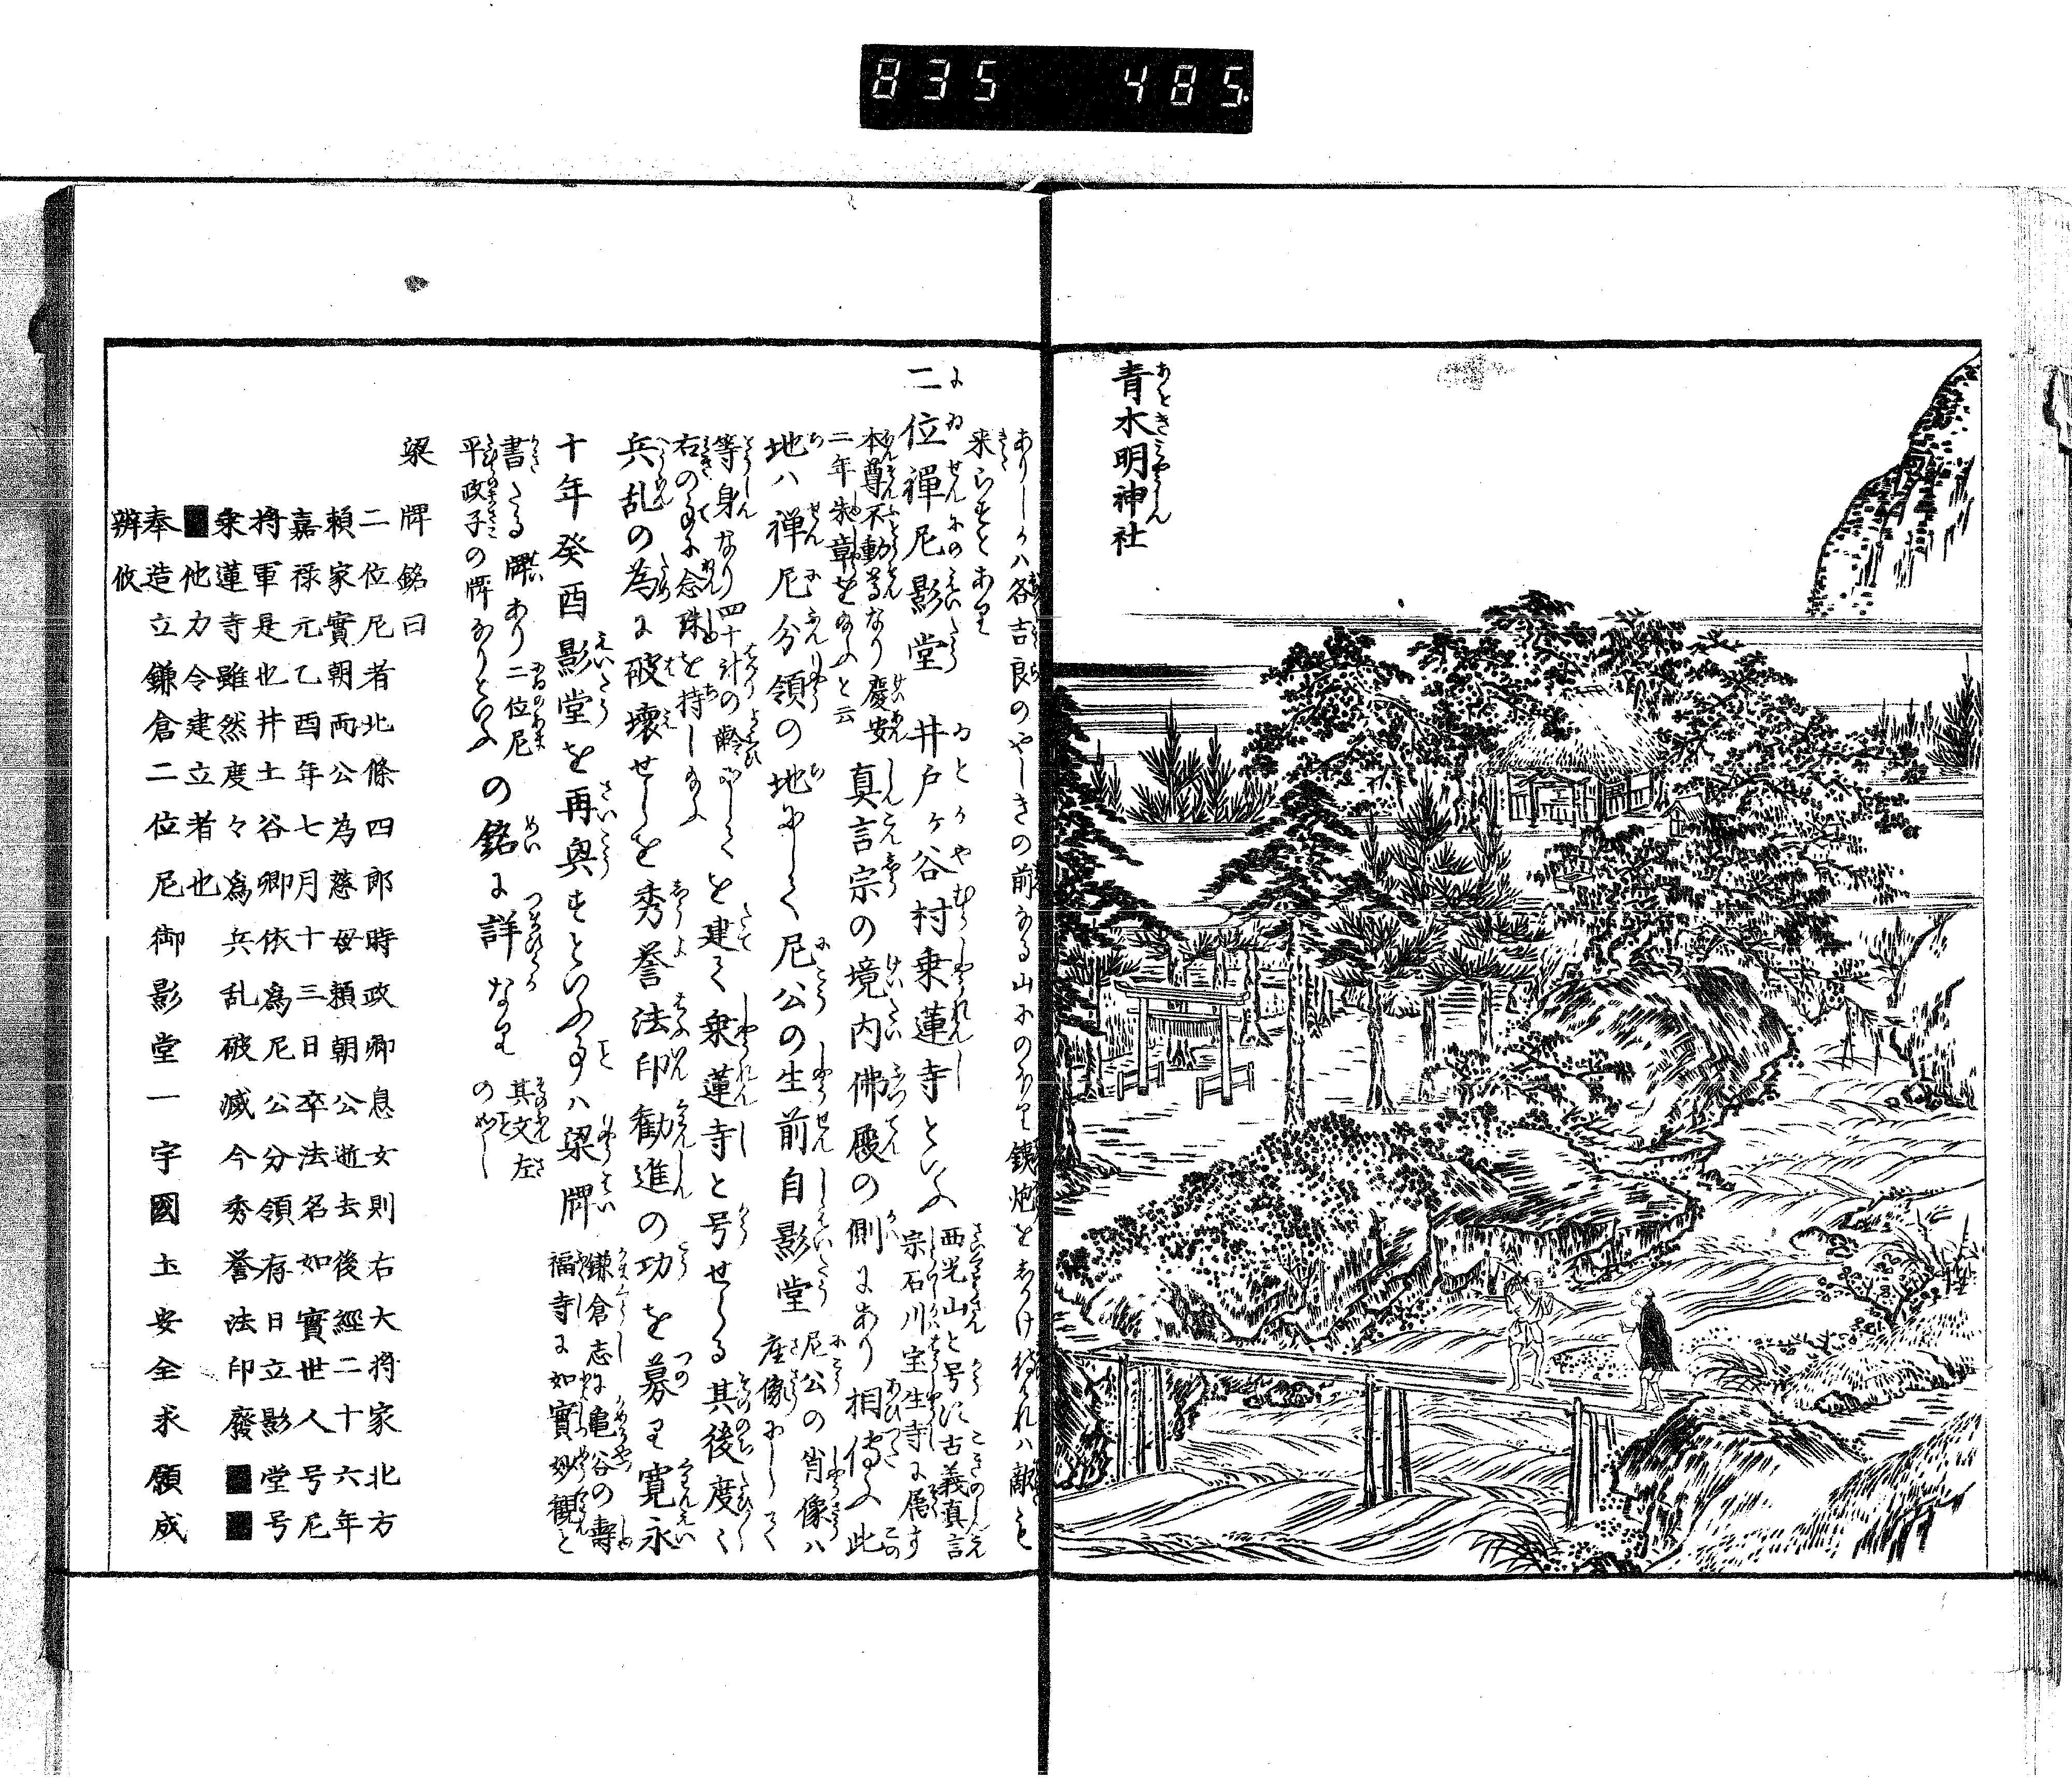 835 485
青木明神社
ありしかハ各吉良のやしきの前なる山にのほり鉄炮をしかけ待れハ敵も
来らすとあり
二位禪尼影堂 井戸ヶ谷村乗蓮寺といふ 西光山と号に古義真言
宗石川宝生寺に属す
本尊不動尊なり慶安
二年朱章を給ふと云 真言宗の境内佛殿の側にあり相傳ふ此
地ハ禅尼分領の地にして尼公の生前自影堂 尼公の肖像ハ
座像にして
等身なり四十計の齢にして
右の手に念珠を持し給ふ を建て乗蓮寺と号せしる其後度々
兵乱の為に破壊せしを秀誉法印勧進の功を募り寛永
十年癸酉影堂を再興すといふ事ハ梁牌 鎌倉志に亀谷の壽
福寺に如實妙観と
書たる牌あり二位尼
平政子の牌なりといふ の銘に詳なり 其文左
の如し
梁牌銘曰
二位尼者北條四郎時政卿息女則右大将家北方
頼家實朝両公為慈母頼朝公逝去後經二十六年
嘉禄元乙酉年七月十三日卒法名如實世人号尼
将軍是也井土谷卿依為尼公分領存日立影堂号
乗蓮寺雖然度々為兵乱破滅今秀誉法印廢■■
■他力令建立者也
奉造立鎌倉二位尼御影堂一宇國土安全求願成
辨攸